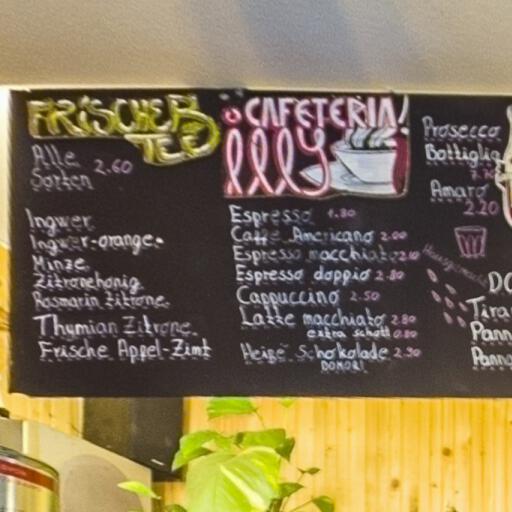 FRISCHER
TEE
Alle 2.60
Sorten
Ingwer
Ingwer-orange
Minze
Zitronehonig
Rosmarin Zitrone
Thymian Zitrone
Frische Appel-Zimt
CAFETERIA!
illy
Espresso 1.80
Caffe Americano 2.00
Espresso macchiato
Espresso doppio 2.80
Cappuccino 2.50
Latte macchiato 2.80
extra schott 0.80
Heiße Schokolade 2.90
DOMORI
Prosecco
Bottiglia
Amaro
2.20
DO
Tira
Pann
Panna